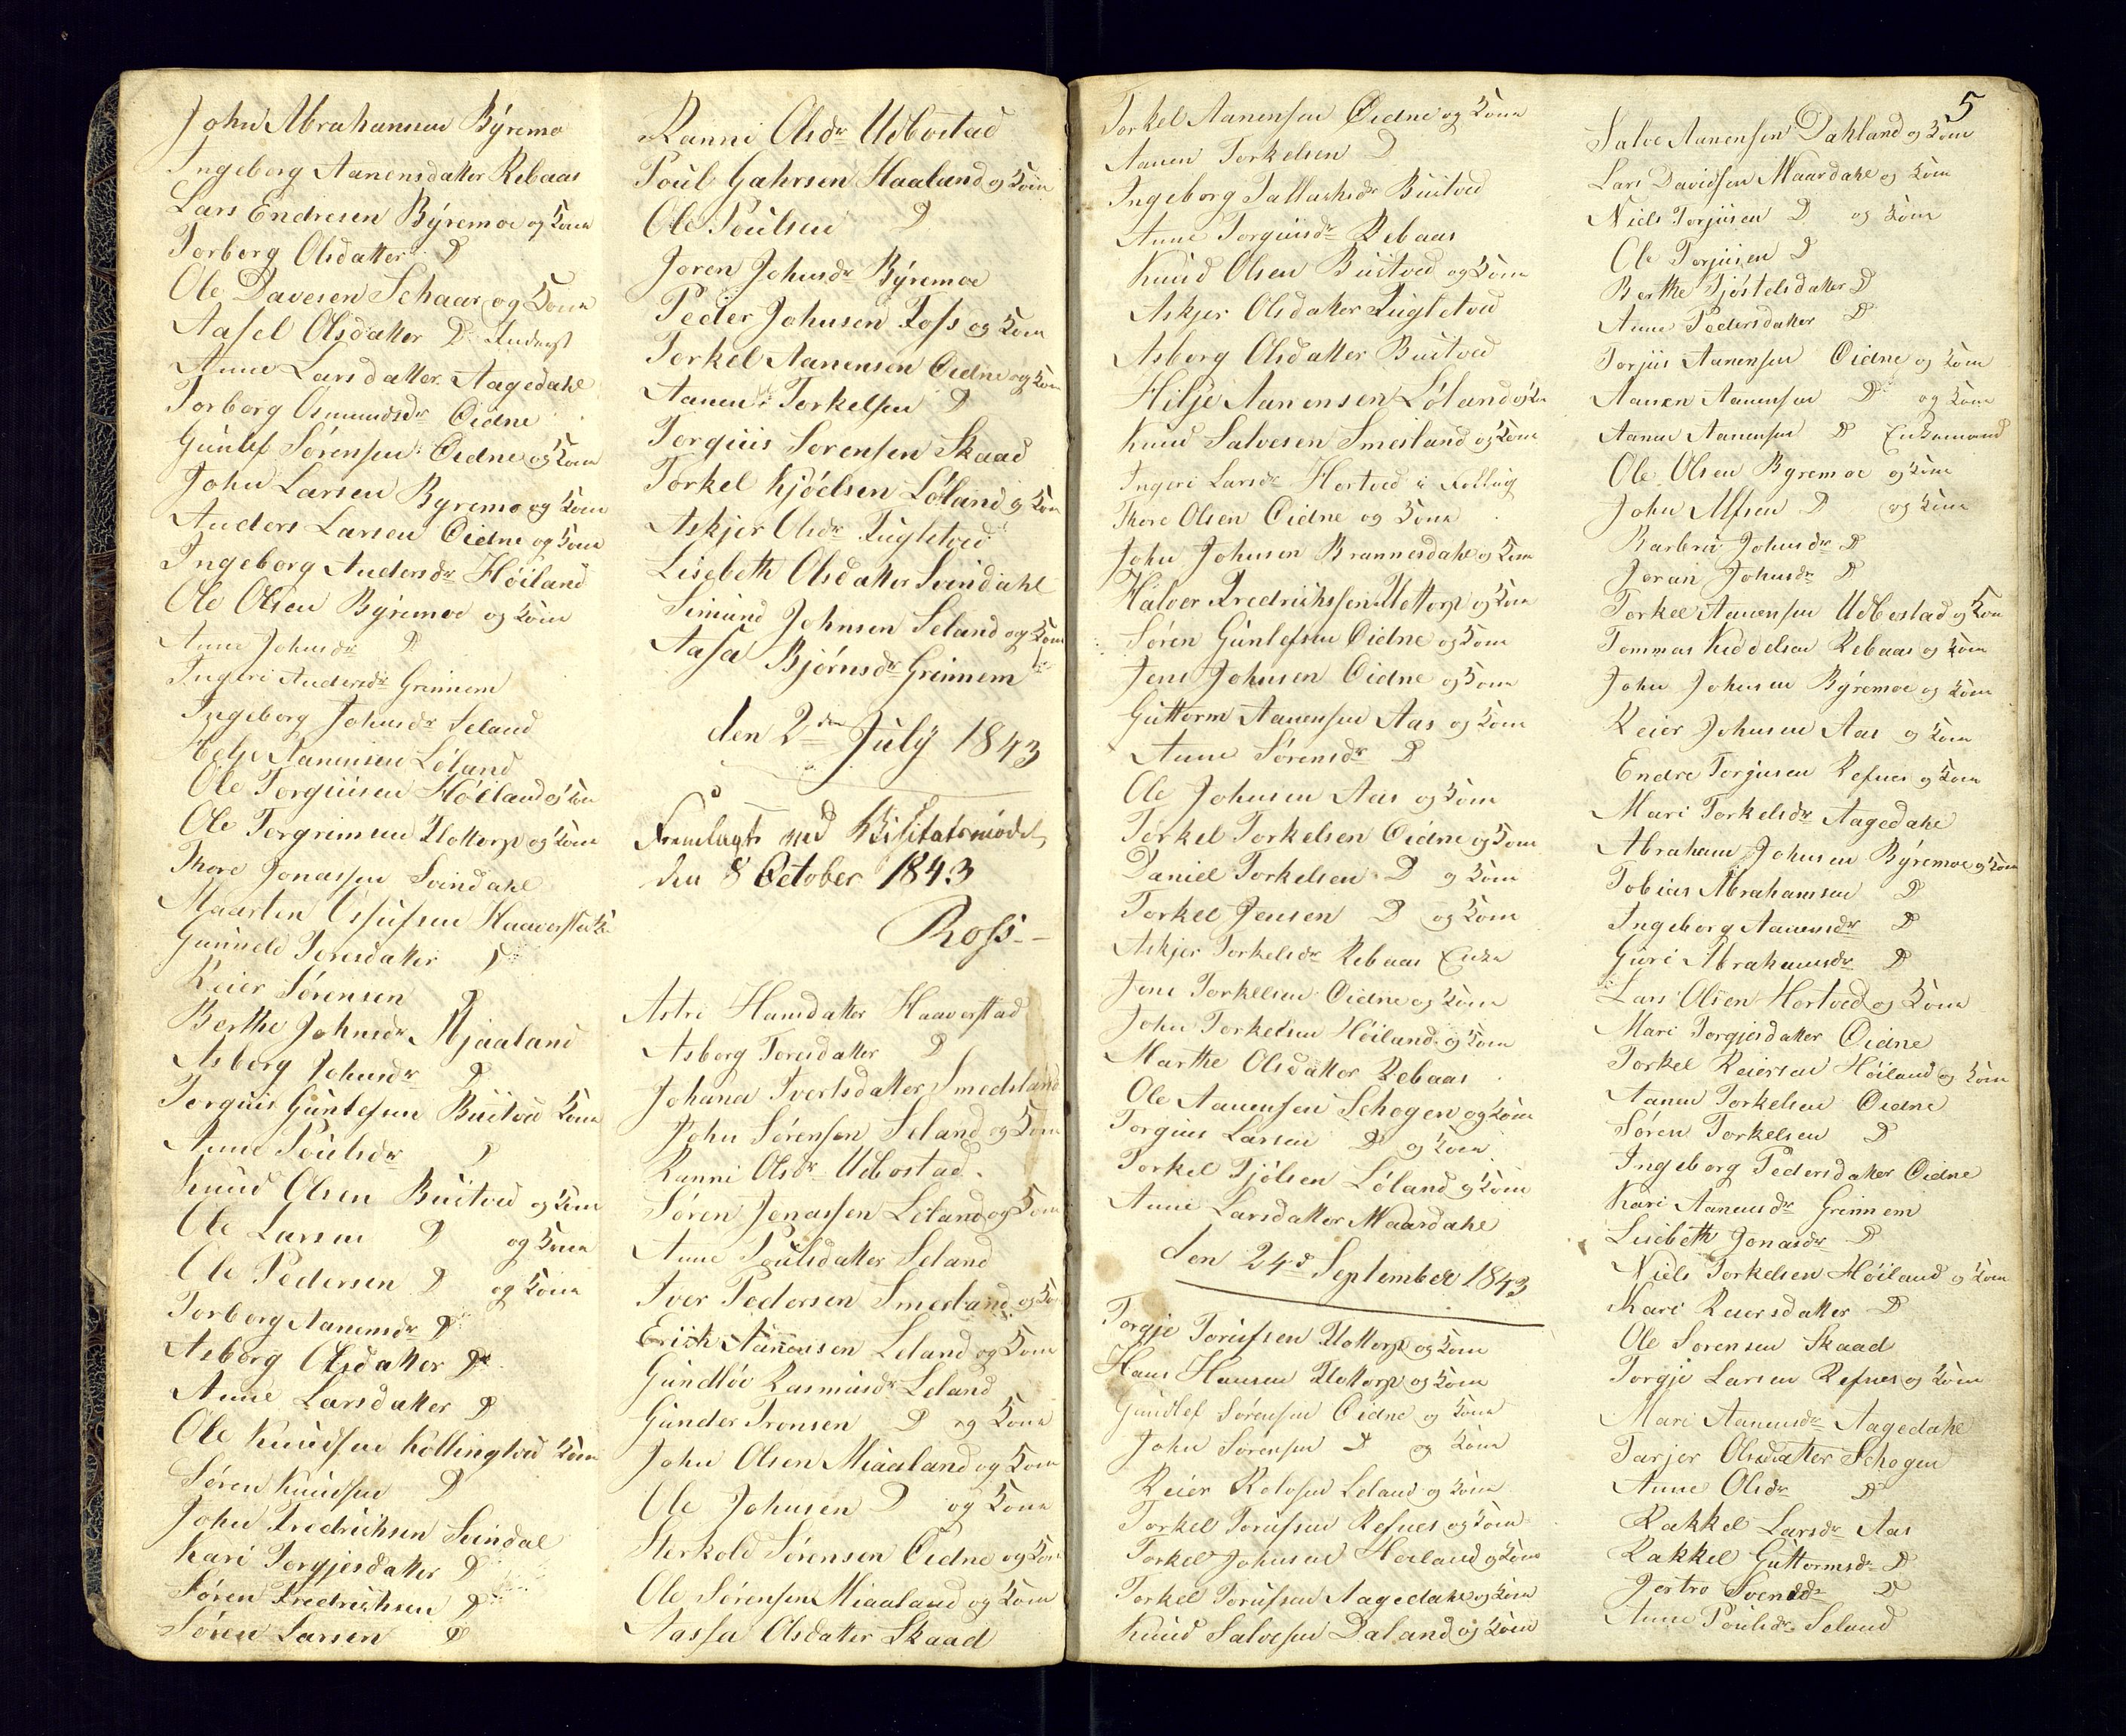 John Abrahamsen Byremo
Ingeborg Aanensdatter Rebaas
Lars Endresen Byremoe og Kone
Torborg Olsdatter D
Ole Davesen Schaar og Kone
Aasel Olsdatter D
Anne Larsdatter Aagedahl
Torborg Osmundsdr Eidne
Gunlef Sørensen Oidne og Kone
John Larsen Byremo og Kone
Anders Larsen Oidne og Kone
Ingeborg Andersdr Høiland
Ole Olsen Byremoe og Kone
Anne Johnsdr D
Ingeri Andersdr Grinnem
Ingeborg Johnsdr Seland
Aanensen Løland
Ole Torguusen Høiland og Kone
Ole Torgrimsen Uottorp og Kone
Thore Jonassen Svindahl
Maarten
Gunneld Toresdatter D
Reier Sørensen D
Berthe Johnsdr Mjaaland
Asborg Johnsdr D
Torguis Gunlefsen Buitved Kone
Anne Poulsdr D
Knud Olsen Buitved og Kone
Ole Larsen D og Kone
Ole Pedersen D og Kone
Torborg Aanensdr D
Asborg Olsdatter D
Anne Larsdatter D
Ole Knudsen Kollingtved Kone
Søren Knudsen D
John Fredrichsen Svindal
Kari Torgjesdatter D
Søren Fredrichsen D
Søren Larsen D
Ranni Olsdr Udbostad
Poul Gahrsen Haaland og Kone
Ole Poulsen D
Joren Johnsdr Byremoe
Peder Johnsen Foss og Kone
Torkel Aanensen Oidne og Kone
Aanen Torkelsen D
Torguiis Sorensen Skaad
Torkel Kjødsen Løland og Kone
Askjer Olsdr Fugletved
Lisebeth Olsdatter Svindahl
Simund Johnsen Seland og Kone
Aasa Bjørnsdr Grinnem
den 2den July 1843
Fremlagt ved Visitatsmødet
den 8 October 1843
Ross
Astri Hansdatter Haaverstad
Asborg Toresdatter D
Johana Ivertsdatter Smedsland
John Sørensen Seland og Kone
Ranni Olsdr Udbostad
Søren Jonassen Leland og Kone
Anne Poulsdatter Seland
Iver Pedersen Smesland og Kone
Erich Aanonsen Leland og Kone
Gundløv Rasmusdr Leland
Gunder Tronsen D og Kone
John Olsen Miaaland og Kone
Ole Johnsen D og Kone
Sterkold Sørensen Oidne og Kone
Ole Sørensen Miaaland og Kone
Aassa Olsdatter Skaad
Torkel Aanensen Oidne og Kone
Aanen Torkelsen D
Ingeborg Tallachsdr Buitved
Anne Torguisdr Rebaas
Knud Olsen Buitved og Kone
Askjer Olsdatter Fugletved
Asborg Olsdatter Buitved
Helje Aanensen Løland og Kone
Knud Salvesen Smesland og Kone
Ingeri Larsdr Hortved i Follug
Thore Olsen Oidne og Kone
John Johnsen Brannesdahl og Kone
Halvor Fredrichssen Uottorp og Kone
Søren Gunlefsen Oidne og Kone
Jens Johnsen Oidne og Kone
Guttorm Aanensen Aas og Kone
Anne Sørensdr D
Ole Johnsen Aas og Kone
Torkel Torkelsen Oidne og Kone
Daniel Torkelsen D og Kone
Torkel Jensen D og Kone
Askjer Torkelsdr Rebaas Enke
Jens Torkelsen Oidne og Kone
John Torkelsen Høiland og Kone
Marthe Olsdatter Rebaas
Ole Aanensen Schogen og Kone
Torguus Larsen D og Kone
Torkel Tjølsen Løland og Kone
Anne Larsdatter Maardahl
den 24d September 1843
Torgje Torufsen Uottorp og Kone
Hans Hansen Uottorp og Kone
Gundlef Sørensen Oidne og Kone
John Sørensen D og Kone
Reier Rolvsen Leland og Kone
Torkel Torufsen Refnes og Kone
Torkel Johnsen Høiland og Kone
Torkel Torufsen Aagedahl og Kone
Knud Salvesen Daland og Kone
5
Salve Aanensen Dahland og Kone
Lars Davidsen Maardahl og Kone
Niels Torjusen D og Kone
Ole Torjusen D
Berthe Tjøstelsdatter D
Anne Pedersdatter D
Torjus Aanensen Oidne og Kone
Aanen Aanensen D og Kone
Aanen Aanensen D Enkemand
Ole Olsen Byremoe og Kone
John Alfsen D og Kone
Barbru Johnsdr D
Joran Johnsdr D
Torkel Aanensen Udbostad og Kone
Tommas Keddelsen Rebaas og Kone
John Johnsen Byremoe og Kone
Reier Johnsen Aas og Kone
Endre Torjusen Refnes og Kone
Mari Torkelsdr Aagedahl
Abraham Johnsen Byremoe og Kone
Tobias Abrahamsen D
Ingeborg Aanensdr D
Guri Abrahamsdr D
Lars Olsen Hortved og Kone
Mari Torgjesdatter Oidne
Torkel Reiersen Høiland og Kone
Aanen Torkelsen Oidne
Søren Torkelsen D
Ingeborg Pedersdatter Oidne
Kari Aanensdr Grinnem
Lisebeth Jonasdr D
Niels Torkelsen Høiland og Kone
Kari Reiersdatter D
Ole Sorensen Skaad
Torgje Larsen Refnes og Kone
Mari Aanensdr Aagedahl
Tarjer Olsdatter Schogen
Anne Olsdr D
Rakkel Larsdr Aas
Rakkel Guttormsdr D
Jortro Svendsdr D
Anne Poulsdr Seland